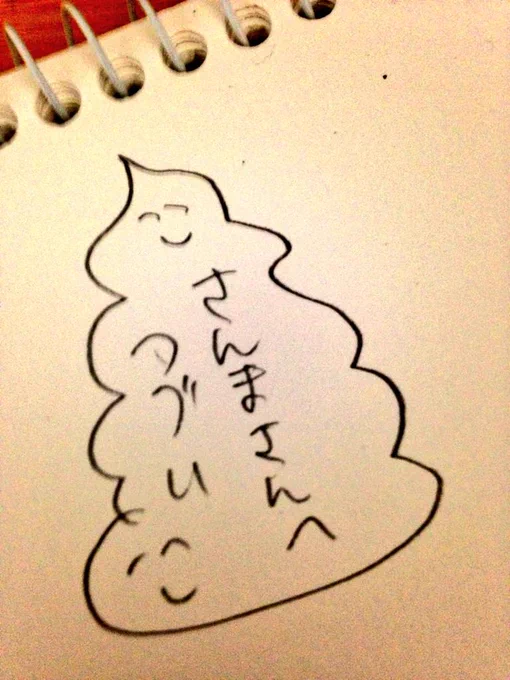 さんまさんへ
つづい